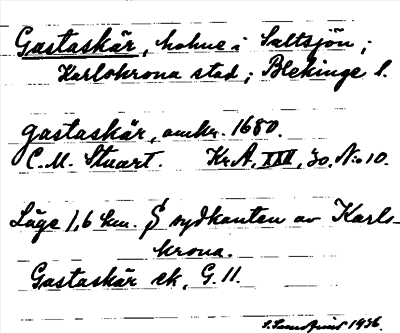 Gastaskär, holme i Saltsjön;
Karlskrona stad; Blekinge l.
Gastaskär, omkr. 1680.
C. M. Stuart. Kr. A, XXII, 30, No 10.
Läge 1,6 km. S sydkanten av Karls-
krona.
Gastaskär ek, G. 11.
1936.